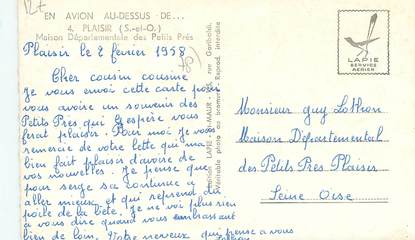 12f
EN AVION AU-DESSUS DE...
4. PLAISIR (S.-et-O.)
Maison Départementale des Petits Prés
Plaisir le 2 février 1958
Cher cousin cousine
Je vous envoi cette carte pour
vous avoire un souvenir des
Petits Pres qui j'espère vous
ferat plaisir. Pour moi je vous
remercie de votre lette qui ma
bien fait plaisir d'avoire de
vos nouvelles. Je pense que
pour serge sa continue a
aller mieux et qui reprend
poile de la bete. Je ne voi plus rien
a vous dire quand vous embrasant
bien de loin. Votre neveux qui pense a vous
LAPIE
SERVICE
AERIEN
Editions LAPIE, St-MAUR rue Garibaldi.
Véritable photo au bromure - Reprod. interdite
Monsieur guy Lothon
Maison Départemental
des Petits Prés Plaisir
Seine Oise